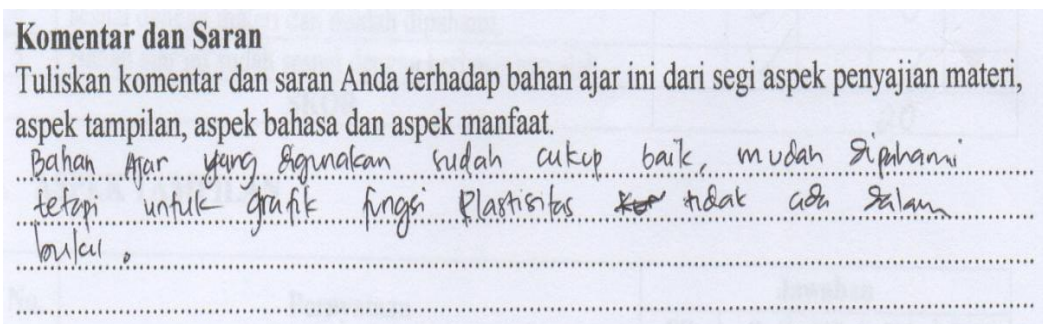 Komentar dan Saran
Tuliskan komentar dan saran Anda terhadap bahan ajar ini dari segi aspek penyajian materi,
aspek tampilan, aspek bahasa dan aspek manfaat.
Bahan Ajar yang digunakan sudah cukup baik, mudah dipahami
tetapi untuk grafik fungsi Plastisitas tidak ada dalam
buku.